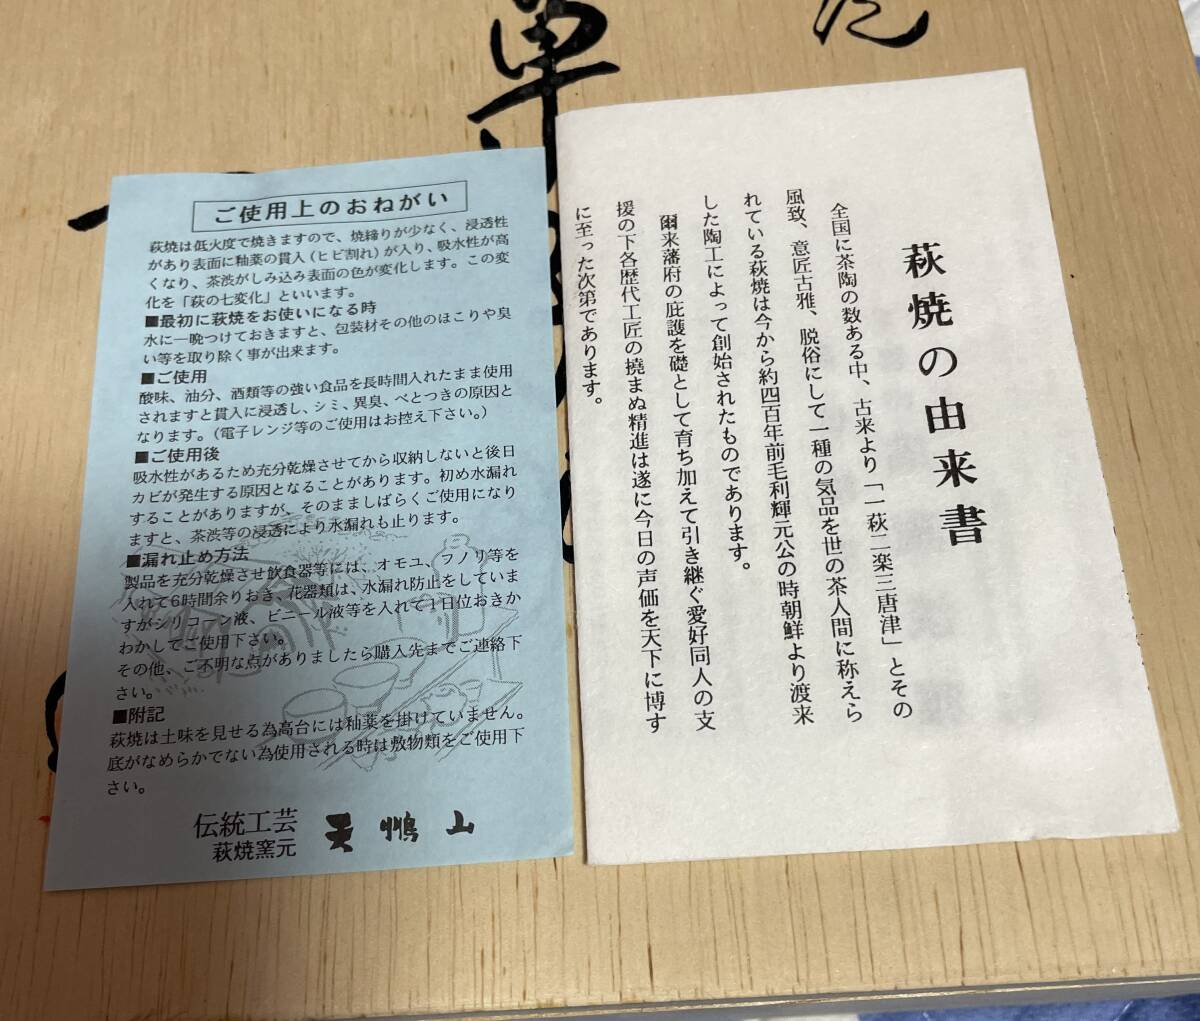 ご使用上のおねがい
萩焼は低火度で焼きますので、焼締りが少なく、浸透性
があり表面に釉薬の貫入(ヒビ割れ)が入り、吸水性が高
くなり、茶渋がしみ込み表面の色が変化します。この変
化を「萩の七変化」といいます。
■最初に萩焼をお使いになる時
水に一晩つけておきますと、包装材その他のほこりや臭
い等を取り除く事が出来ます。
■ご使用
酸味、油分、酒類等の強い食品を長時間入れたまま使用
されますと貫入に浸透し、シミ、異臭、べとつきの原因と
なります。(電子レンジ等のご使用はお控え下さい。)
■ご使用後
吸水性があるため充分乾燥させてから収納しないと後日
カビが発生する原因となることがあります。初め水漏れ
することがありますが、そのまましばらくご使用になり
ますと、茶渋等の浸透により水漏れも止ります。
■漏れ止め方法
製品を充分乾燥させ飲食器等には、オモユ、フノリ等を
入れて6時間余りおき、花器類は、水漏れ防止をしていま
すがシリコーン液、ビニール液等を入れて1日位おきか
わかしてご使用下さい。
その他、ご不明な点がありましたら購入先までご連絡下
さい。
■附記
萩焼は土味を見せる為高台には秞薬を掛けていません。
底がなめらかでない為使用される時は敷物類をご使用下
さい。
伝統工芸
萩焼窯元
天鵬山
萩焼の由来書
全国に茶陶の数ある中、古来より「一萩二楽三唐津」とその
風致、意匠古雅、脱俗にして一種の気品を世の茶人間に称えら
れている萩焼は今から約四百年前毛利輝元公の時朝鮮より渡来
した陶工によって創始されたものであります。
爾来藩府の庇護を礎として育ち加えて引き継ぐ愛好同人の支
援の下各歴代工匠の撓まぬ精進は遂に今日の声価を天下に博す
に至った次第であります。